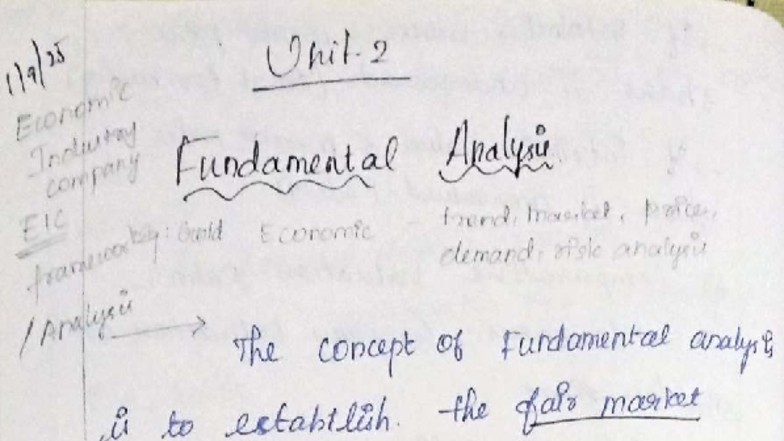 1/9/25
Unit-2
Economic
Industry
company
EIC
framework
/Analysis
Fundamental Analysis
Eg: Gold Economic - trend, market, price,
demand, risk analysis
The concept of Fundamental analysis
is to establish. the fair market